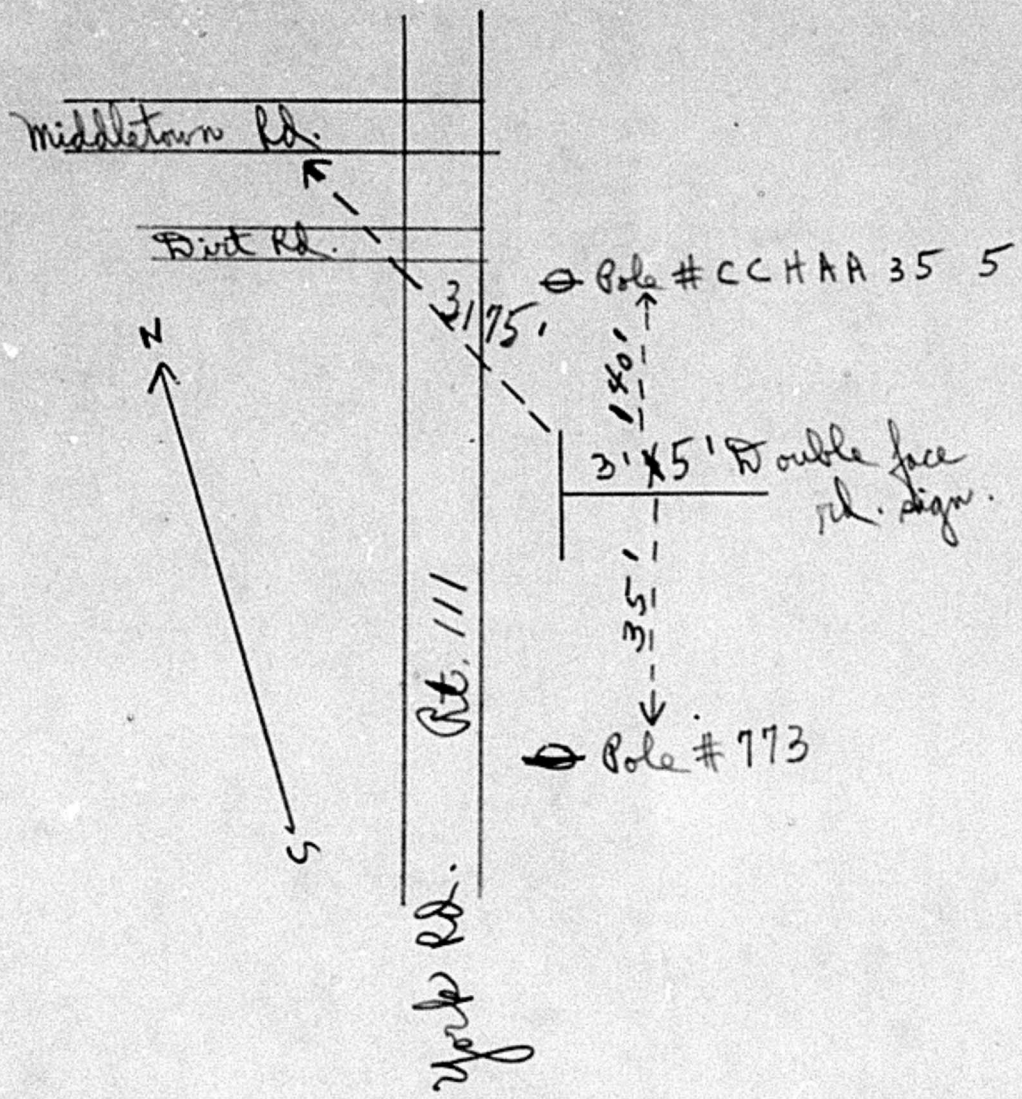 Middletown Rd.
Dirt Rd.
N
3175'
Pole # CCHAA 35 5
140'
3' X 5' Double face
rd. sign.
35'
S
Rt. 111
Pole # 773
York Rd.